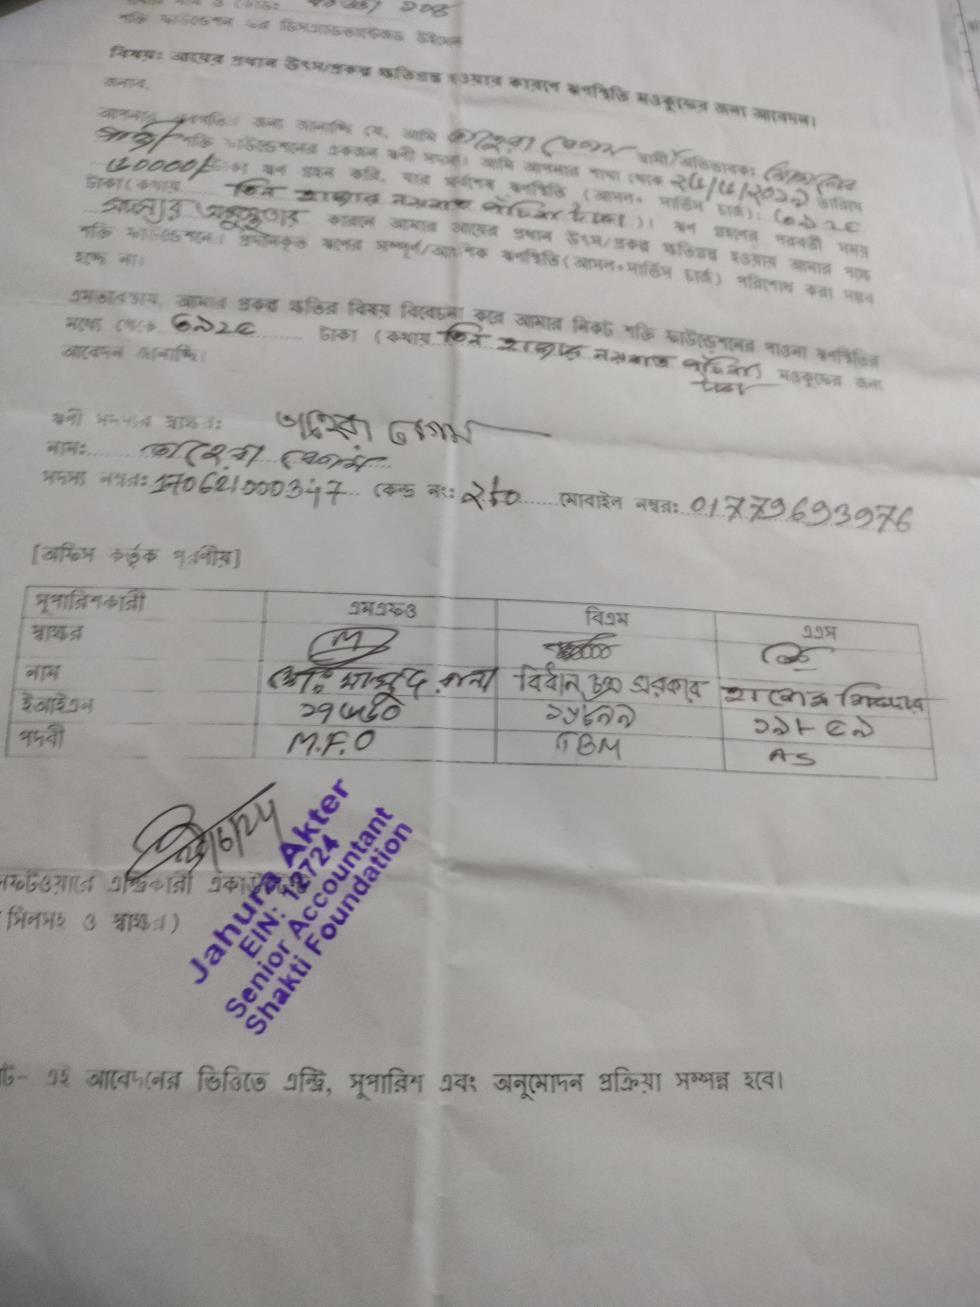 শক্তি ফাউন্ডেশন ফর ডিসএডভান্টেজড উইমেন
বিষয়ঃ আয়ের প্রধান উৎস/প্রকল্প ক্ষতিগ্রস্ত হওয়ার কারণে ঋণস্থিতি মওকুফের জন্য আবেদন।
জনাব,
আপনার অবগতির জন্য জানাচ্ছি যে, আমি তাহেরা বেগম স্বামী/অভিভাবকঃ
শক্তি ফাউন্ডেশনের একজন ঋণী সদস্য। আমি আপনার শাখা থেকে তারিখে
টাকা ঋণ গ্রহন করি, যার সর্বশেষ ঋণস্থিতি (আসল+ সার্ভিস চার্জ)ঃ ৩৯২৫
টাকা (কথায় তিন হাজার নয়শত পঁচিশ টাকা)। ঋণ গ্রহনের পরবর্তী সময়
অসুস্থতার কারনে আমার আয়ের প্রধান উৎস/প্রকল্প ক্ষতিগ্রস্ত হওয়ায় আমার পক্ষে
শক্তি ফাউন্ডেশনের প্রদানকৃত ঋণের সম্পূর্ণ/আংশিক ঋণস্থিতি (আসল+সার্ভিস চার্জ) পরিশোধ করা সম্ভব
হচ্ছে না।
এমতাবস্থায়, আমার প্রকল্প ক্ষতির বিষয় বিবেচনা করে আমার নিকট শক্তি ফাউন্ডেশনের পাওনা ঋণস্থিতির
মধ্যে থেকে ৩৯২৫ টাকা (কথায় তিন হাজার নয়শত পঁচিশ টাকা) মওকুফের জন্য
আবেদন জানাচ্ছি।
ঋণী সদস্যের স্বাক্ষরঃ তাহেরা বেগম
নামঃ তাহেরা বেগম
সদস্য নম্বরঃ 170621000347 কেন্দ্র নংঃ ২৮০ মোবাইল নম্বরঃ 01779693976
[অফিস কর্তৃক পূরণীয়]
সুপারিশকারী এমএফও বিএম এএস
স্বাক্ষর
নাম মোঃ মাসুদ রানা বিধান চন্দ্র সরকার
ইআইএন
পদবী M.F.O TBM AS
সফটওয়্যারে এন্ট্রিকারী
সিলসহ ও স্বাক্ষর)
Jahura Akter
EIN: 12724
Senior Accountant
Shakti Foundation
এই আবেদনের ভিত্তিতে এন্ট্রি, সুপারিশ এবং অনুমোদন প্রক্রিয়া সম্পন্ন হবে।